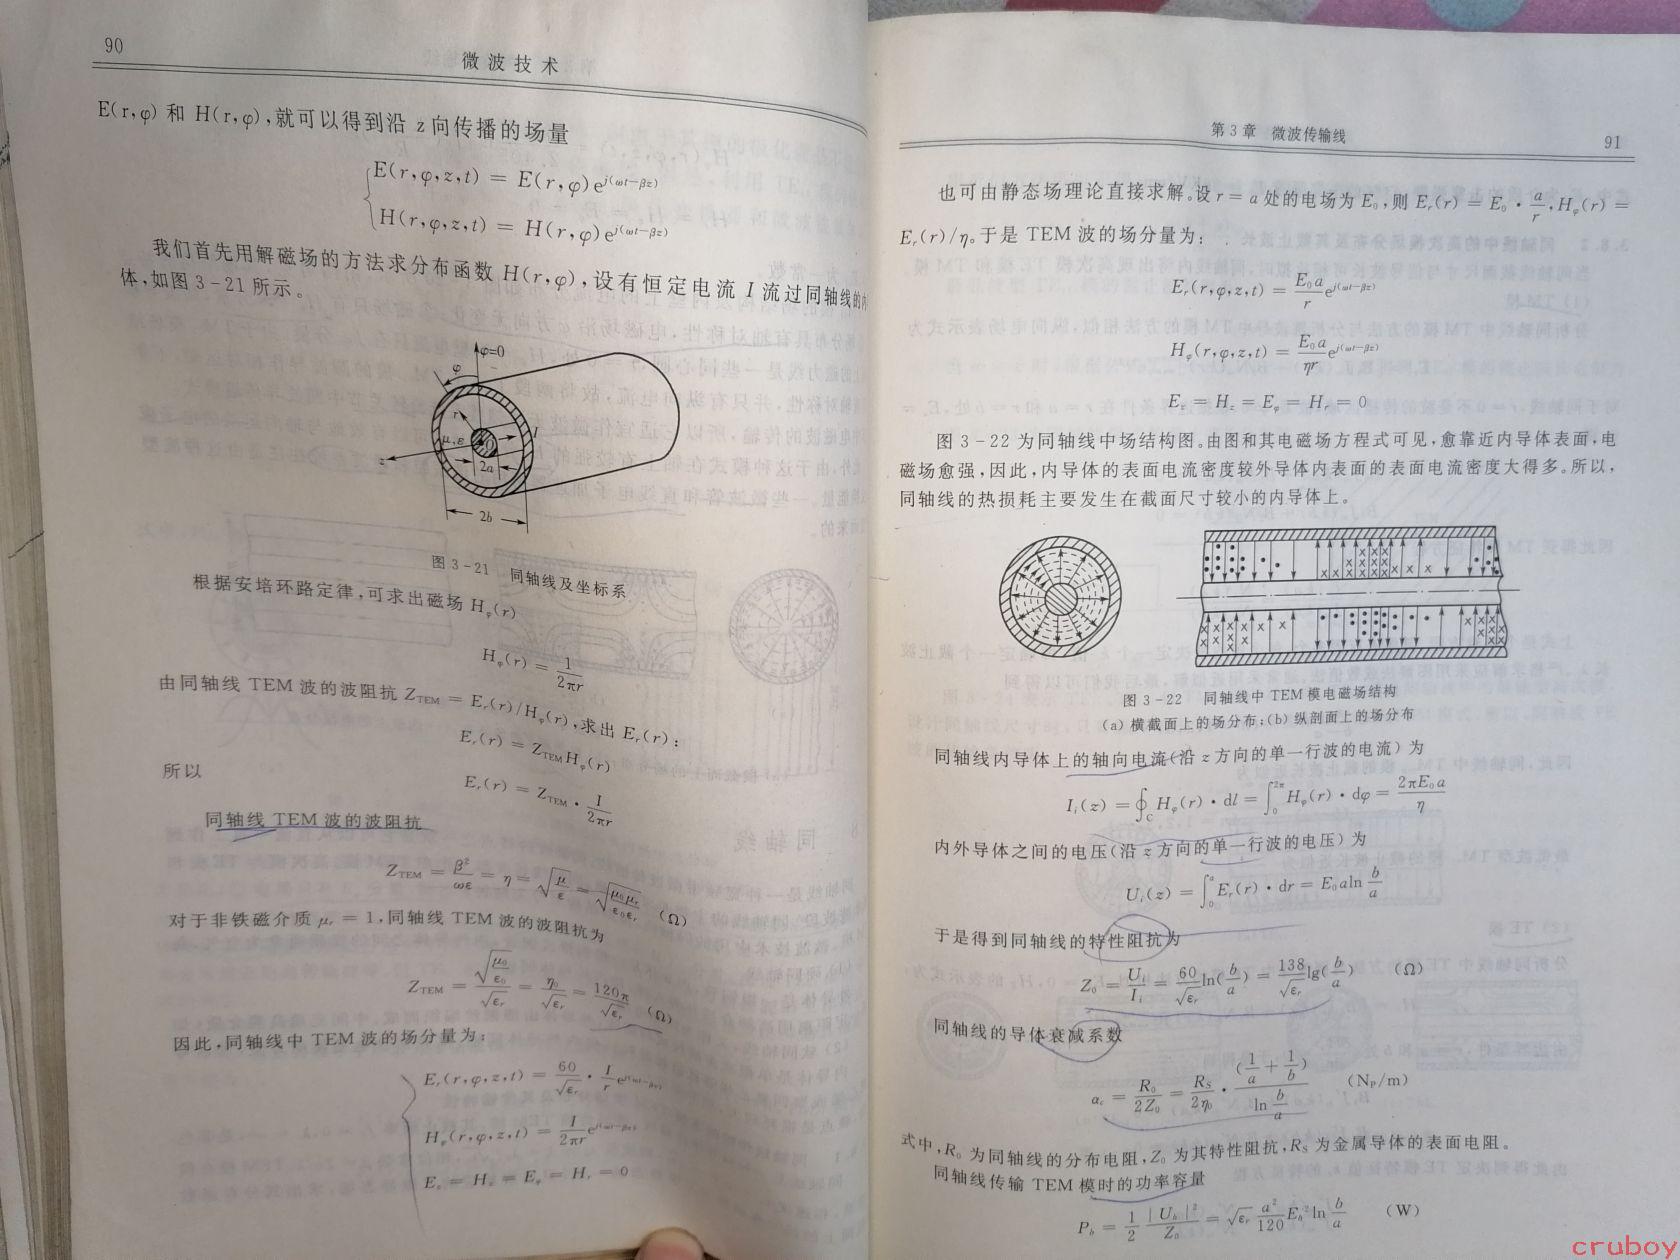 90
微波技术
E(r,φ) 和 H(r,φ),就可以得到沿 z 向传播的场量
E(r,φ,z,t) = E(r,φ)e^{j(ωt−βz)}
H(r,φ,z,t) = H(r,φ)e^{j(ωt−βz)}
我们首先用解磁场的方法求分布函数 H(r,φ),设有恒定电流 I 流过同轴线的内
体,如图 3-21 所示。
φ=0
φ
r
μ,ε
I
z
2a
2b
图 3-21 同轴线及坐标系
根据安培环路定律,可求出磁场 H_φ(r)
H_φ(r) = 1/2πr
由同轴线 TEM 波的波阻抗 Z_TEM = E_r(r)/H_φ(r),求出 E_r(r):
E_r(r) = Z_TEM H_φ(r)
所以
E_r(r) = Z_TEM · I/2πr
同轴线 TEM 波的波阻抗
Z_TEM = β²/ωε = η = √(μ/ε) = √(μ₀μ_r/ε₀ε_r) (Ω)
对于非铁磁介质 μ_r = 1,同轴线 TEM 波的波阻抗为
Z_TEM = √(μ₀/ε₀)/√ε_r = η₀/√ε_r = 120π/√ε_r (Ω)
因此,同轴线中 TEM 波的场分量为:
E_r(r,φ,z,t) = 60/√ε_r · I/r e^{j(ωt−βz)}
H_φ(r,φ,z,t) = I/2πr e^{j(ωt−βz)}
E_z = H_z = E_φ = H_r = 0
第 3 章 微波传输线
91
也可由静态场理论直接求解。设 r = a 处的电场为 E₀,则 E_r(r) = E₀ · a/r,H_φ(r) =
E_r(r)/η。于是 TEM 波的场分量为:
E_r(r,φ,z,t) = E₀a/r e^{j(ωt−βz)}
H_φ(r,φ,z,t) = E₀a/ηr e^{j(ωt−βz)}
E_z = H_z = E_φ = H_r = 0
图 3-22 为同轴线中场结构图。由图和其电磁场方程式可见,愈靠近内导体表面,电
磁场愈强,因此,内导体的表面电流密度较外导体内表面的表面电流密度大得多。所以,
同轴线的热损耗主要发生在截面尺寸较小的内导体上。
图 3-22 同轴线中 TEM 模电磁场结构
(a) 横截面上的场分布;(b) 纵剖面上的场分布
同轴线内导体上的轴向电流(沿 z 方向的单一行波的电流) 为
I_i(z) = ∮_C H_φ(r) · dl = ∫₀^{2π} H_φ(r) · dφ = 2πE₀a/η
内外导体之间的电压(沿 z 方向的单一行波的电压) 为
U_i(z) = ∫₀^a E_r(r) · dr = E₀aln b/a
于是得到同轴线的特性阻抗为
Z₀ = U_i/I_i = 60/√ε_r ln(b/a) = 138/√ε_r lg(b/a) (Ω)
同轴线的导体衰减系数
α_c = R₀/2Z₀ = R_S/2η₀ · (1/a + 1/b)/ln b/a (N_P/m)
式中,R₀ 为同轴线的分布电阻,Z₀ 为其特性阻抗,R_S 为金属导体的表面电阻。
同轴线传输 TEM 模时的功率容量
P_b = 1/2 |U_b|²/Z₀ = √ε_r a²/120 E_b² ln b/a (W)
cruboy